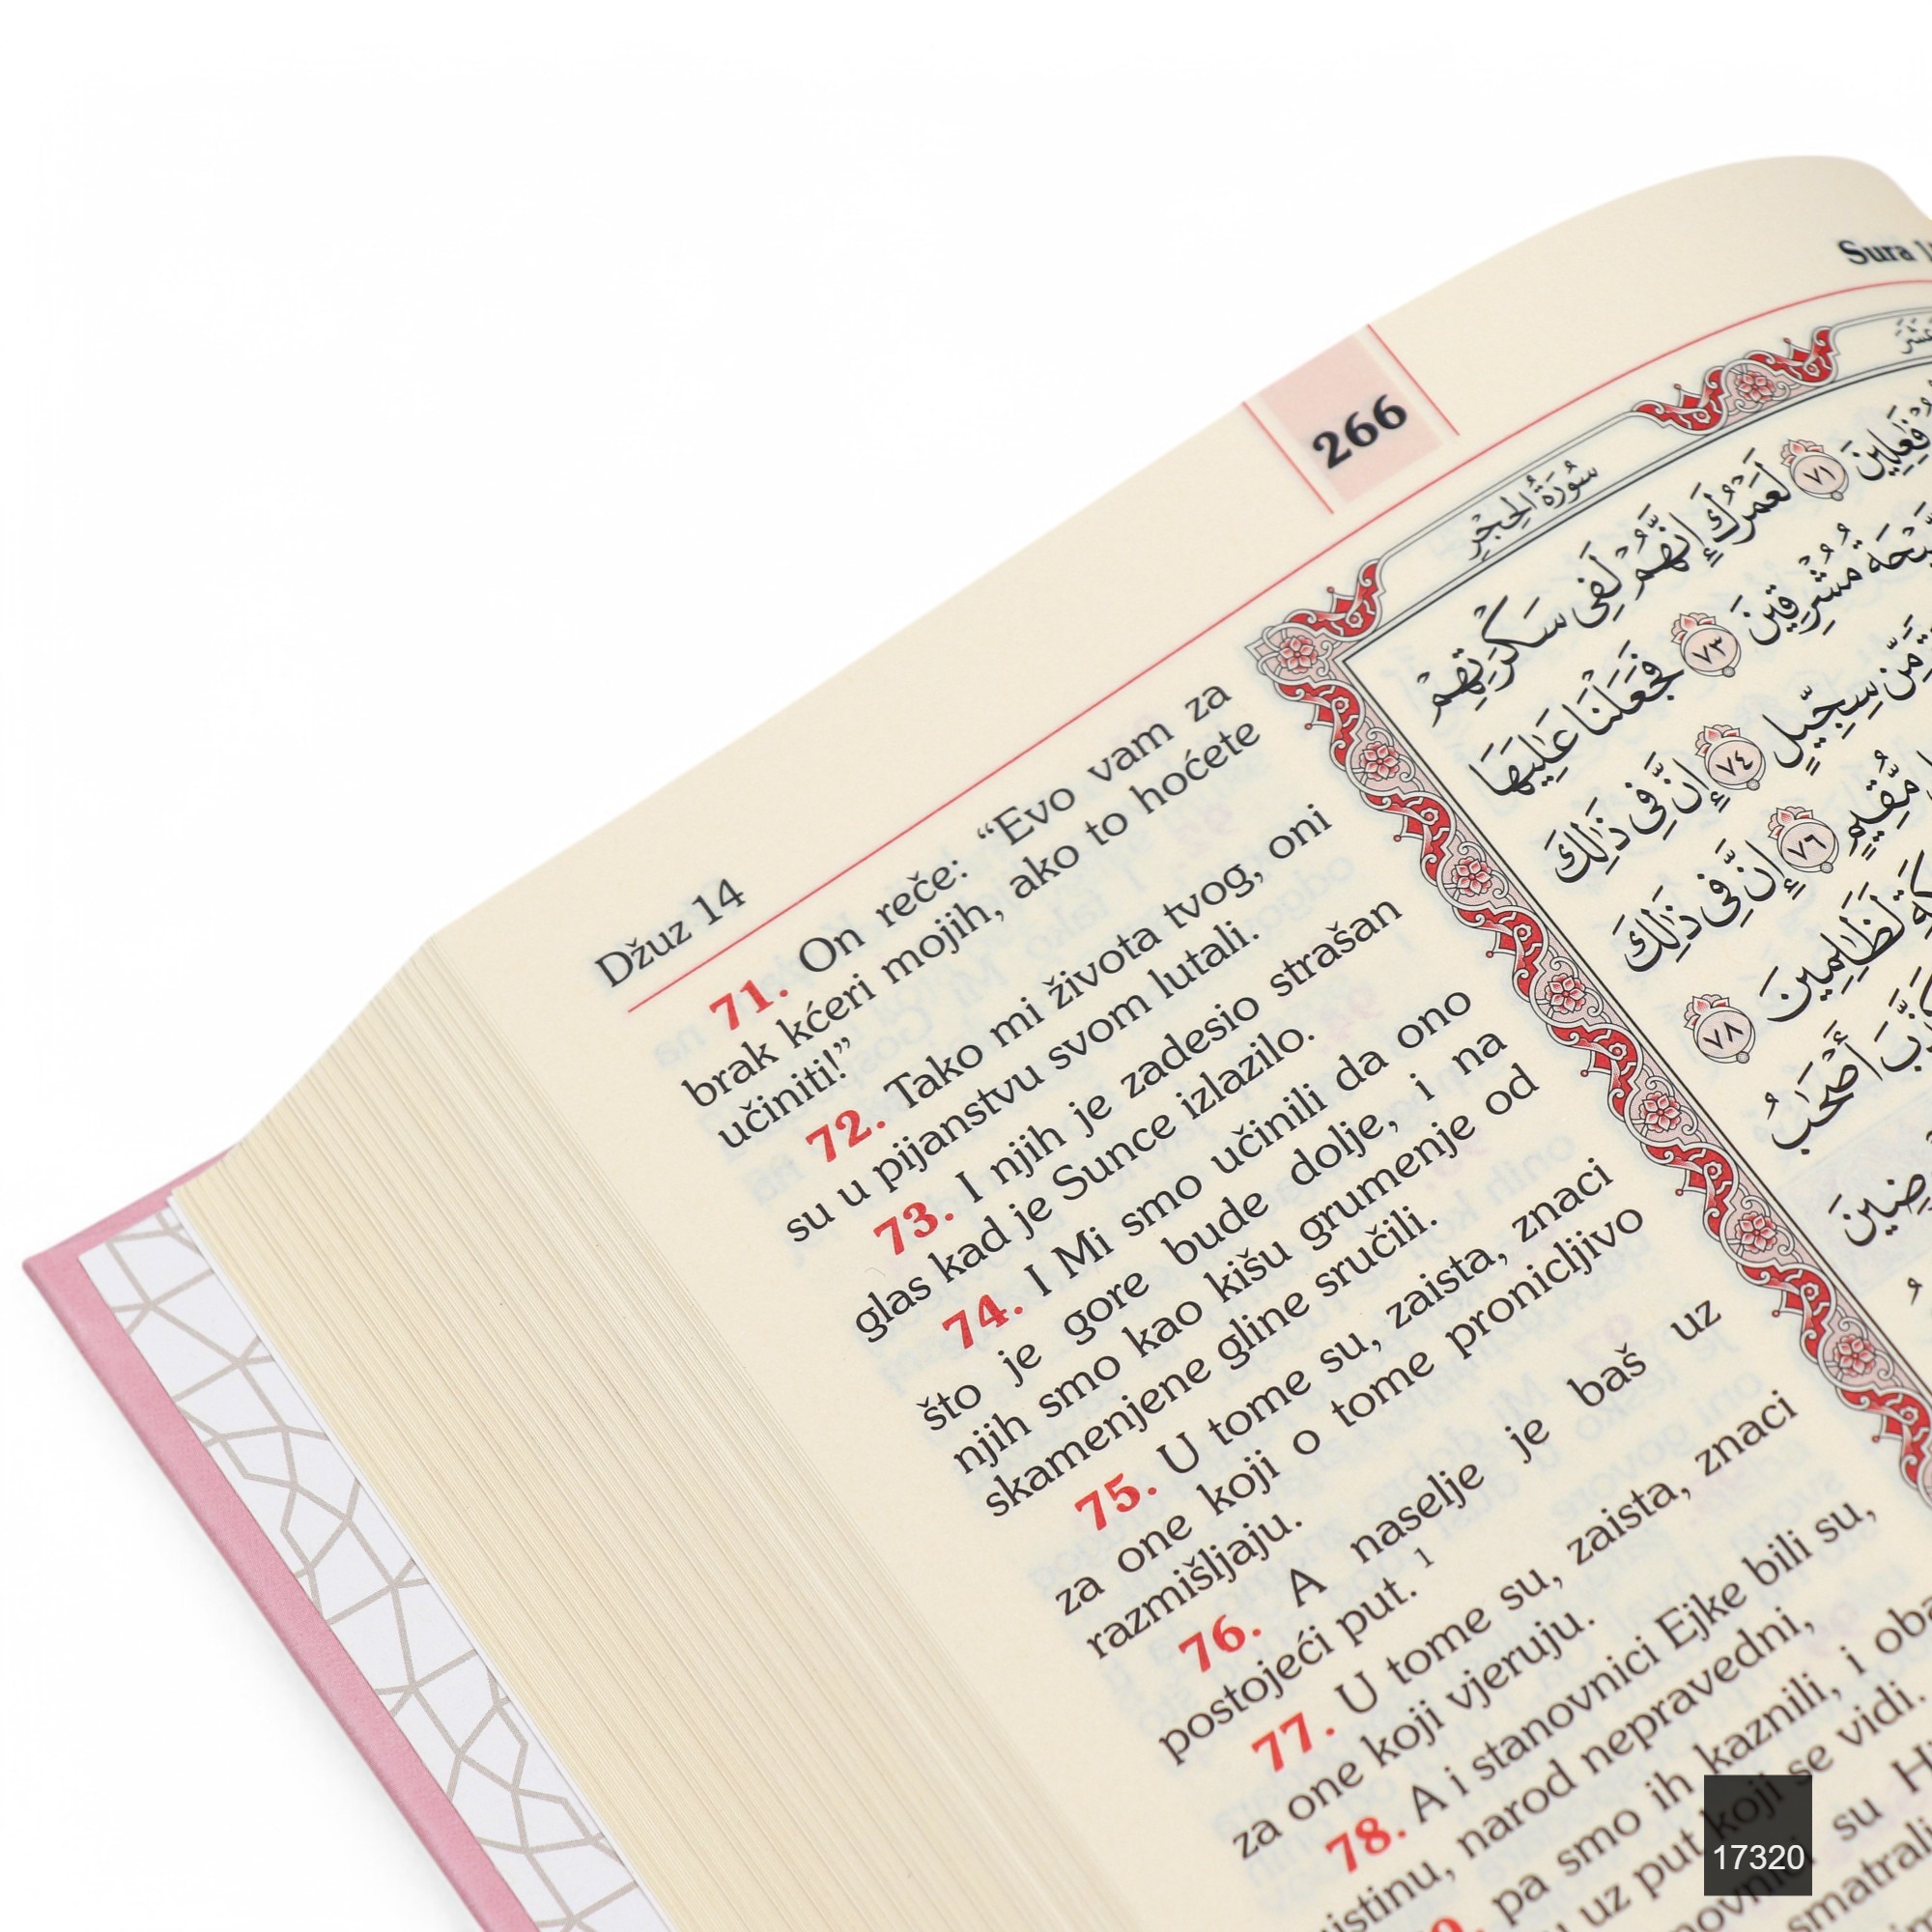 Sura
266
Džuz 14
71. On reče: “Evo vam za
brak kćeri mojih, ako to hoćete
učiniti!”
72. Tako mi života tvog, oni
su u pijanstvu svom lutali.
73. I njih je zadesio strašan
glas kad je Sunce izlazilo.
74. I Mi smo učinili da ono
što je gore bude dolje, i na
njih smo kao kišu grumenje od
skamenjene gline sručili.
75. U tome su, zaista, znaci
za one koji o tome pronicljivo
razmišljaju.
76. A naselje je baš uz
postojeći put. 1
77. U tome su, zaista, znaci
za one koji vjeruju.
78. A i stanovnici Ejke bili su,
narod nepravedni,
pa smo ih kaznili, i
uz put koji se vidi.
su
سُورَةُ الْحِجْرِ
فَٰعِلِينَ ٧١ لَعَمْرُكَ إِنَّهُمْ لَفِى سَكْرَتِهِمْ
مُشْرِقِينَ ٧٣ فَجَعَلْنَا عَٰلِيَهَا
مِّن سِجِّيلٍ ٧٤ إِنَّ فِى ذَٰلِكَ
مُّقِيمٍ ٧٦ إِنَّ فِى ذَٰلِكَ
لَظَٰلِمِينَ ٧٨
أَصْحَٰبُ
17320